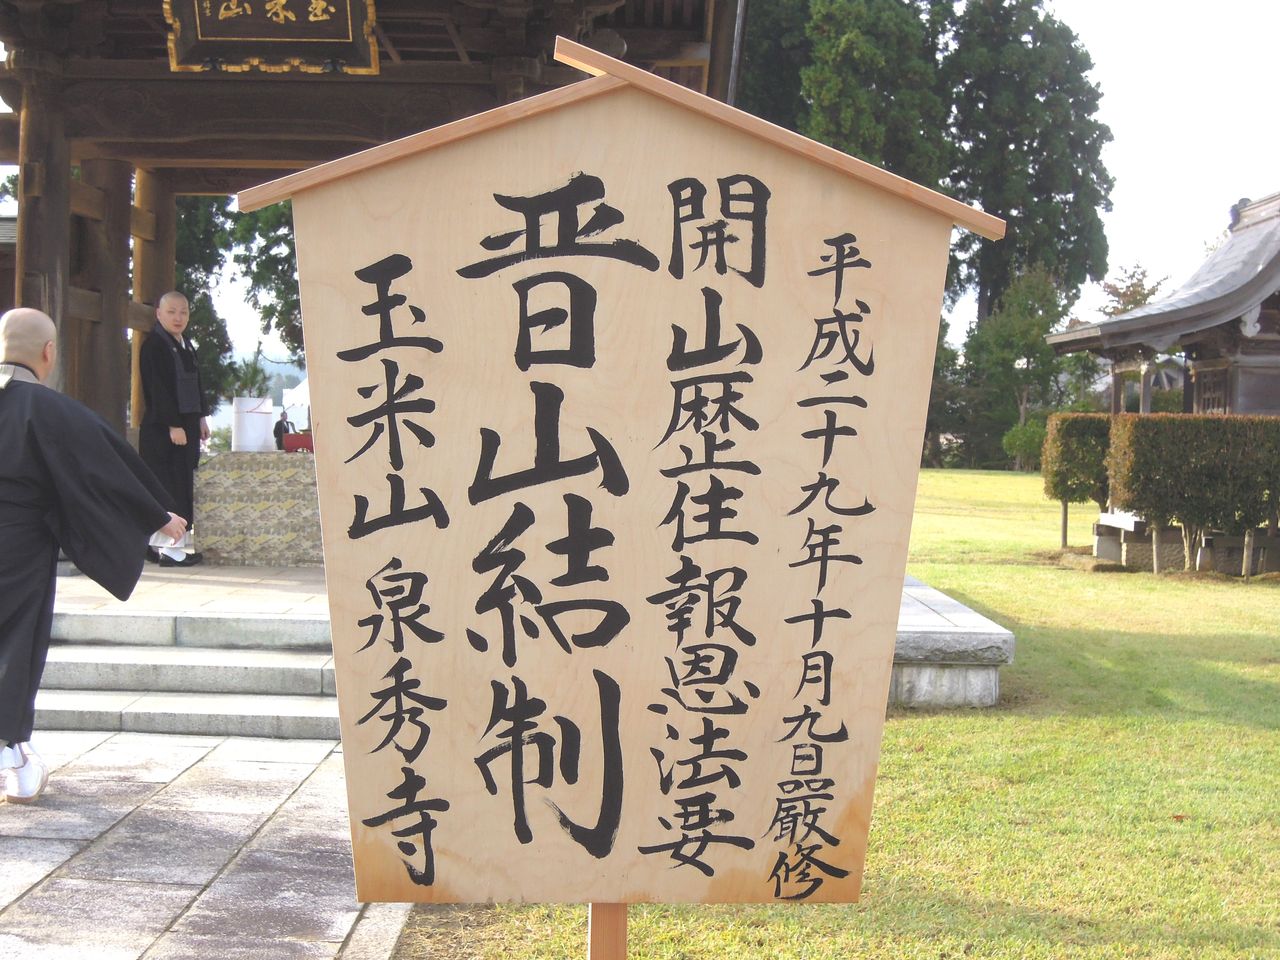 平成二十九年十月九日厳修
開山歴住報恩法要
晋山結制
玉米山 泉秀寺
玉米山